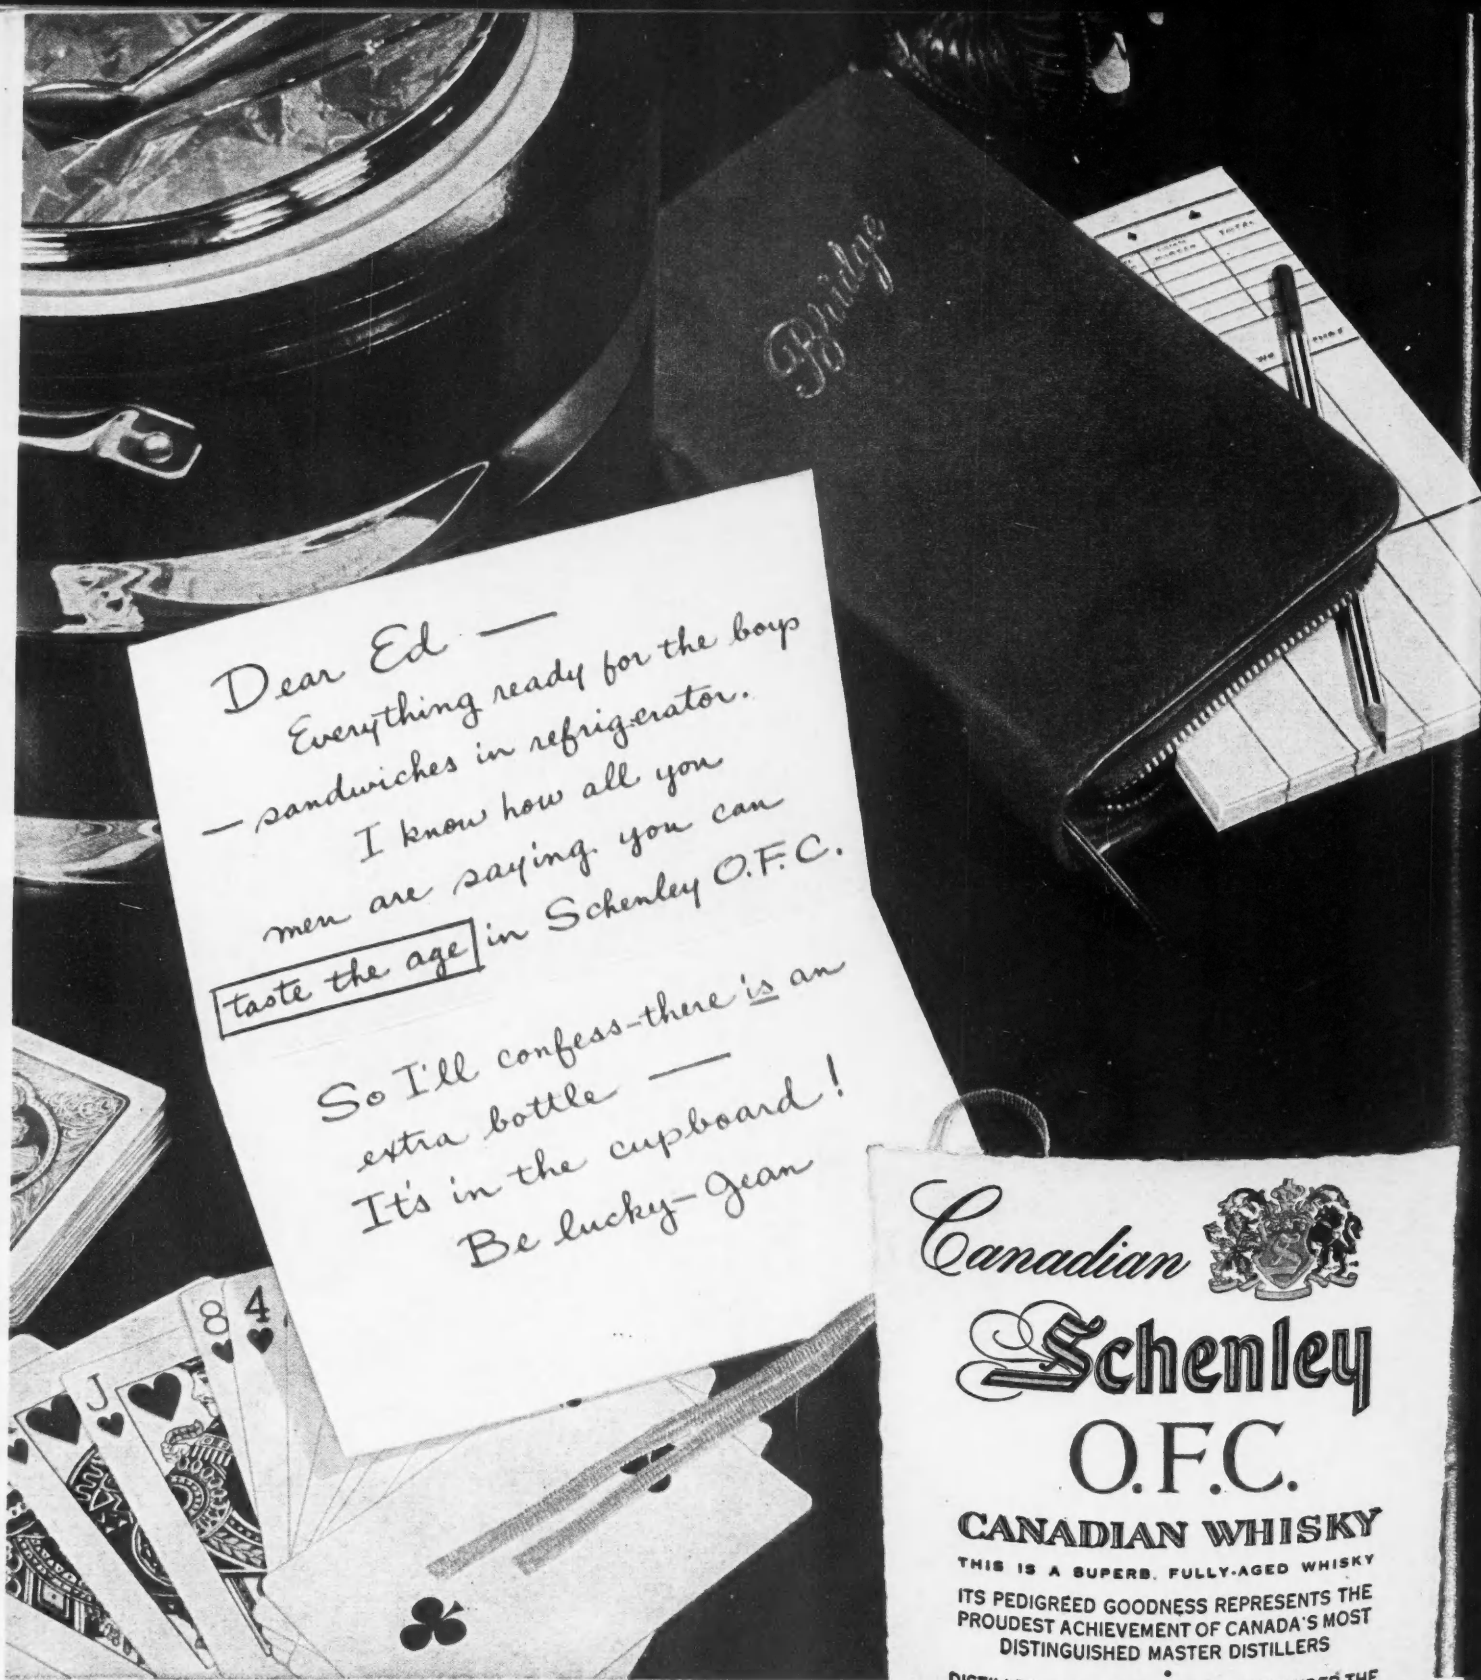 Bridge
TOTAL
WE
Dear Ed —
Everything ready for the boys
— sandwiches in refrigerator.
I know how all you
men are saying you can
taste the age in Schenley O.F.C.
So I'll confess-there is an
extra bottle —
It's in the cupboard!
Be lucky-Jean
8 4
J
Canadian
Schenley
O.F.C.
CANADIAN WHISKY
THIS IS A SUPERB, FULLY-AGED WHISKY
ITS PEDIGREED GOODNESS REPRESENTS THE
PROUDEST ACHIEVEMENT OF CANADA'S MOST
DISTINGUISHED MASTER DISTILLERS
THE